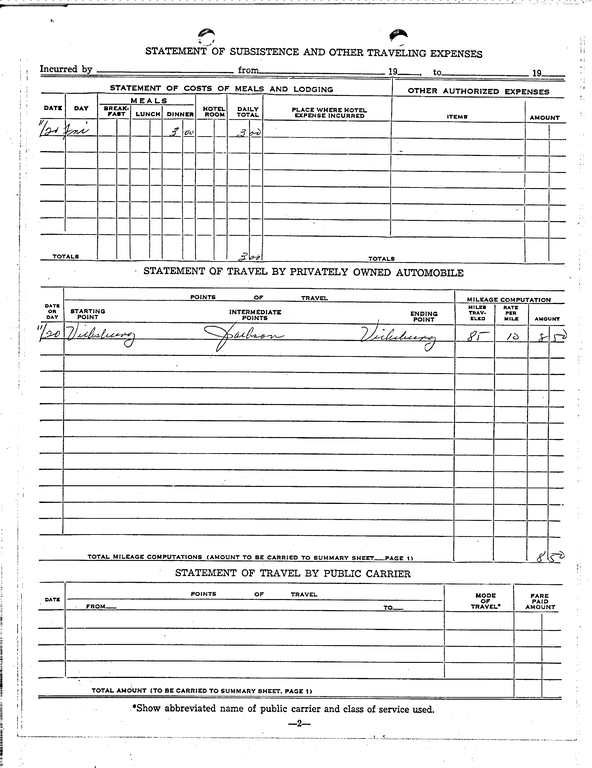 STATEMENT OF SUBSISTENCE AND OTHER TRAVELING EXPENSES
Incurred by from 19 , to 19
STATEMENT OF COSTS OF MEALS AND LODGING OTHER AUTHORIZED EXPENSES
DATE DAY MEALS BREAK-FAST LUNCH DINNER HOTEL ROOM DAILY TOTAL PLACE WHERE HOTEL EXPENSE INCURRED ITEMS AMOUNT
11/20 Fri 3 00 3 00
TOTALS 3 00 TOTALS
STATEMENT OF TRAVEL BY PRIVATELY OWNED AUTOMOBILE
POINTS OF TRAVEL MILEAGE COMPUTATION
DATE OR DAY STARTING POINT INTERMEDIATE POINTS ENDING POINT MILES TRAV-ELED RATE PER MILE AMOUNT
11/20 Vicksburg Jackson Vicksburg 85 10 8 50
TOTAL MILEAGE COMPUTATIONS (AMOUNT TO BE CARRIED TO SUMMARY SHEET—PAGE 1) 8 50
STATEMENT OF TRAVEL BY PUBLIC CARRIER
DATE POINTS OF TRAVEL MODE OF TRAVEL* FARE PAID AMOUNT
FROM— TO—
TOTAL AMOUNT (TO BE CARRIED TO SUMMARY SHEET, PAGE 1)
*Show abbreviated name of public carrier and class of service used.
—2—